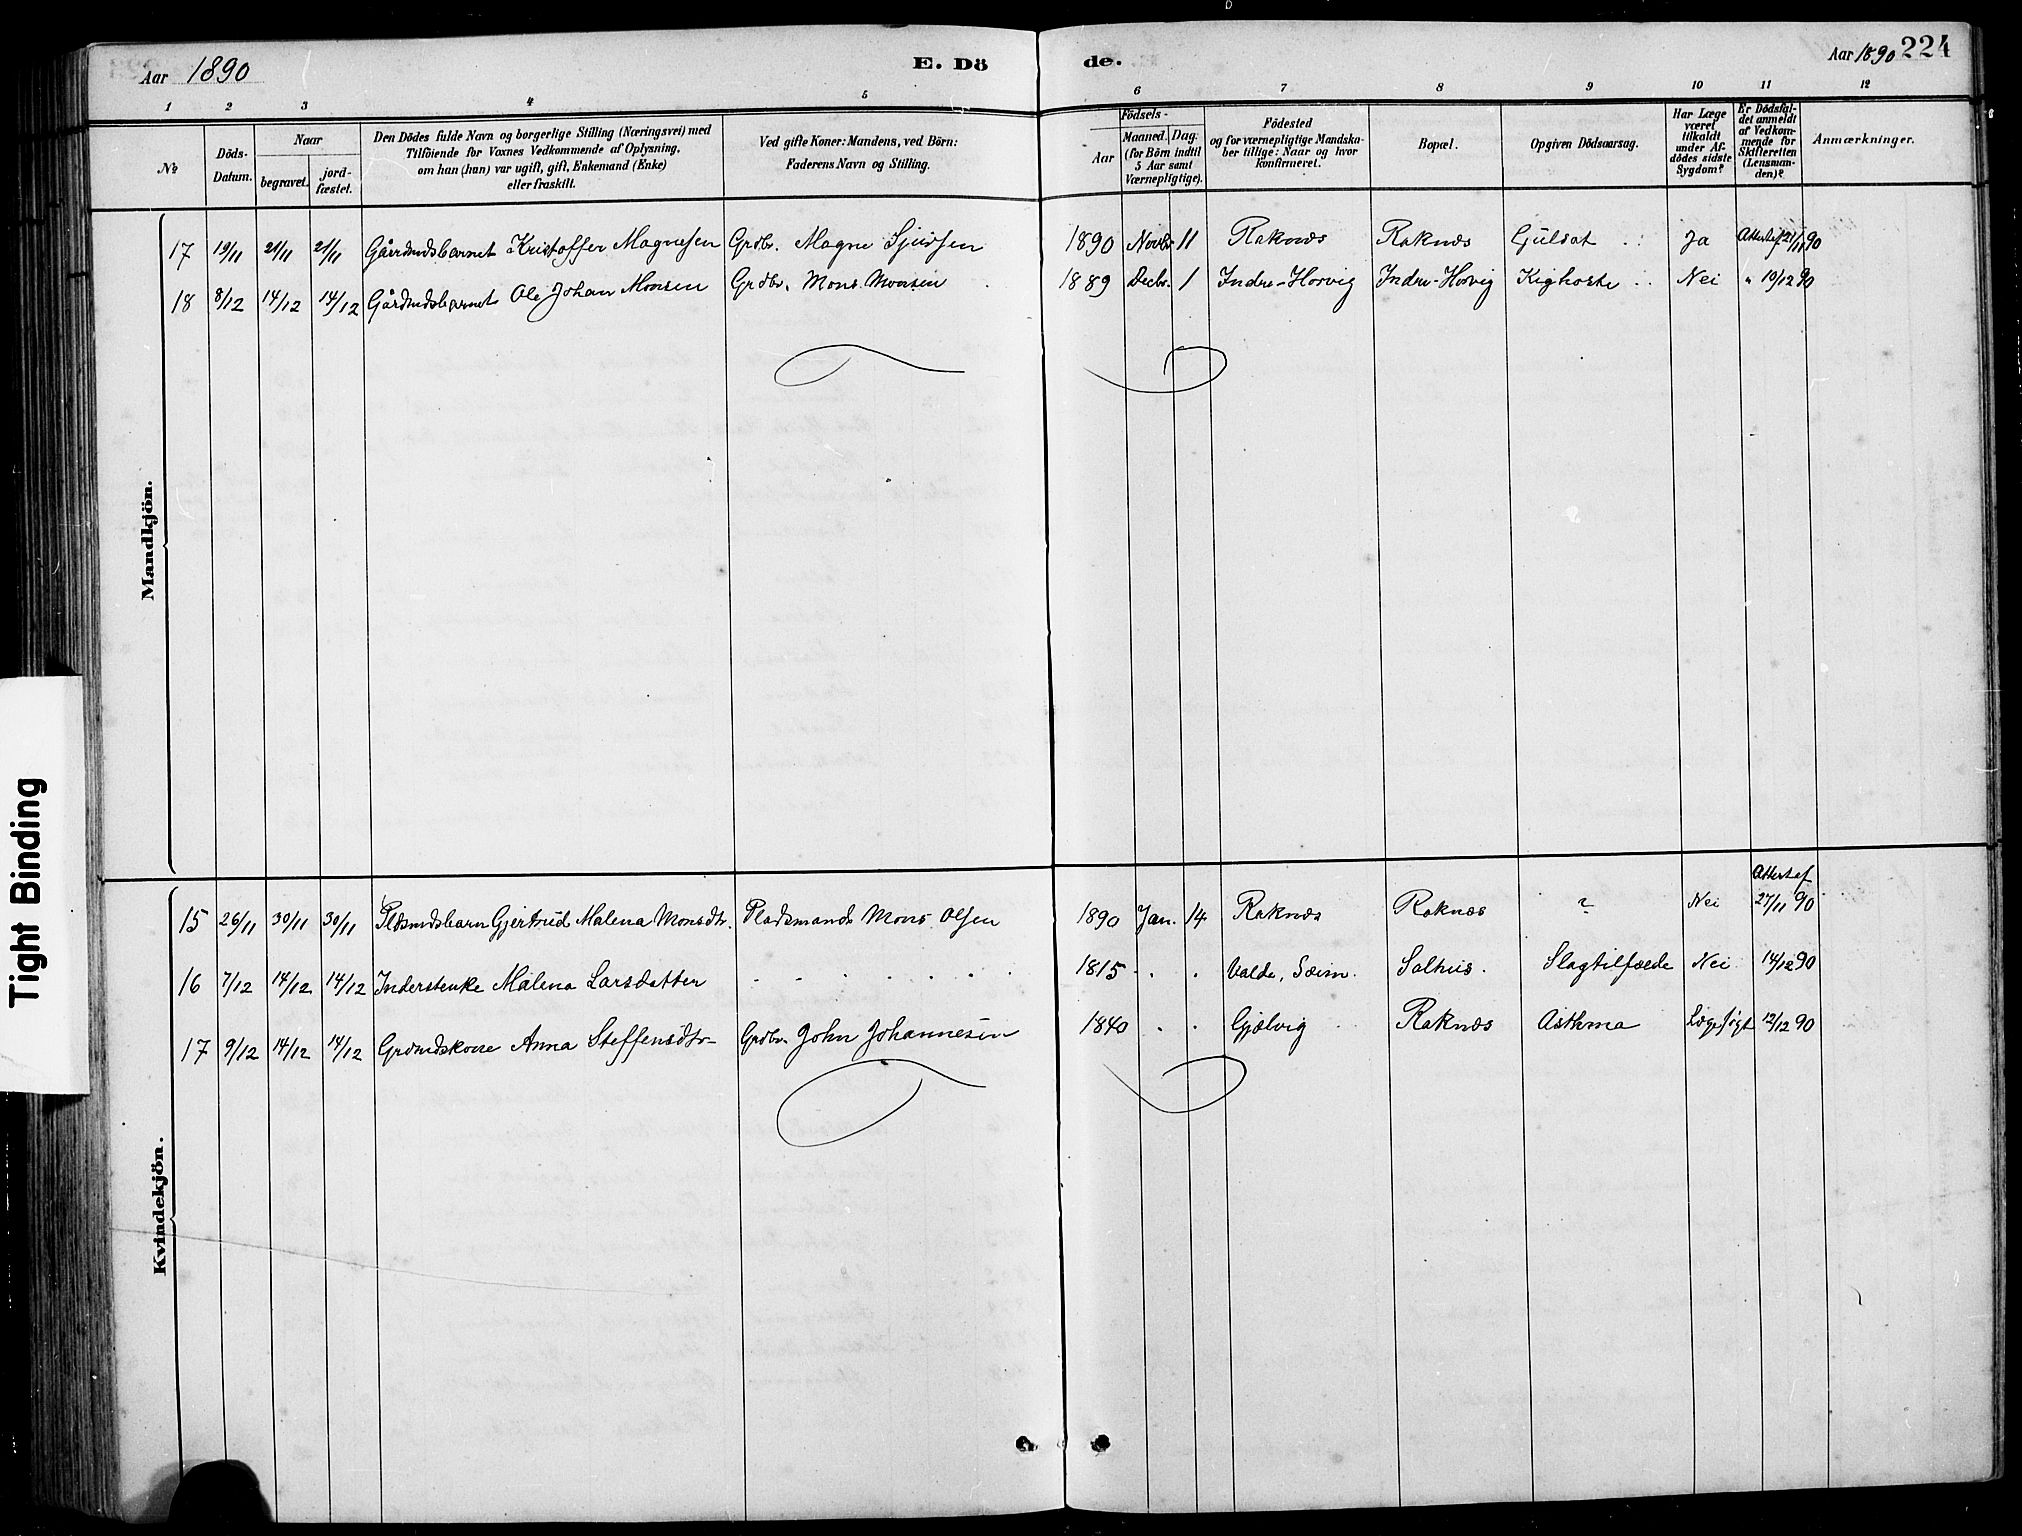 Aar 1890
E. Dö
de.
Aar 1890 224
1 2 3 4 5 6 7 8 9 10 11 12
№
Döds-
Datum.
Naar
begravet.
jord-
fæstet.
Den Dödes fulde Navn og borgerlige Stilling (Næringsvei) med
Tilföiende for Voxnes Vedkommende af Oplysning,
om han (hun) var ugift, gift, Enkemand (Enke)
eller fraskilt.
Ved gifte Koner: Mandens, ved Börn:
Faderens Navn og Stilling.
Födsels-
Aar
Maaned. Dag.
(for Börn indtil
5 Aar samt
Værnepligtige).
Födested
og for værnepligtige Mandska-
ber tillige: Naar og hvor
konfirmeret.
Bopæl.
Opgiven Dödsaarsag.
Har Læge
været
tilkaldt
under Af-
dödes sidste
Sygdom?
Er Dödsfal-
det anmeldt
af Vedkom-
mende for
Skifteretten
(Lensman-
den)?
Anmærkninger.
Mandkjön.
17 19/11 21/11 21/11 Gårdmdsbarnet Kristoffer Magnesen Grdbr. Magne Sjursen 1890 Novbr 11 Raknæs Raknæs Gulsot Ja Attest af 21/11 90
18 8/12 14/12 14/12 Gårdmdsbarnet Ole Johan Monsen Grdbr. Mons Monsen 1889 Decbr. 1 Indre-Horvig Indre-Horvig Kighoste Nei " 10/12 90
Kvindekjön.
15 26/11 30/11 30/11 Pldsmdsbarn Gjertrud Malena Monsdtr. Pladsmand Mons Olsen 1890 Jan. 14 Raknæs Raknæs ? Nei Attest af 27/11 90
16 7/12 14/12 14/12 Inderstenke Malena Larsdatter 1815 Valde, Sæim. Salhus. Slagtilfælde Nei 14/12 90
17 9/12 14/12 14/12 Grdmdskone Anna Steffensdtr Grdbr. John Johannesen 1840 Gjelvig Raknæs Asthma Læge søgt 12/12 90
Tight Binding